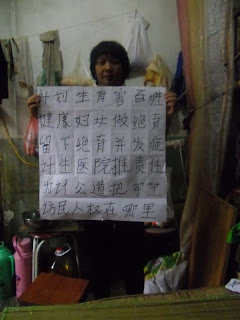 计划生育害百姓
健康妇女做绝育
留下绝育并发症
计生医院推责任
为讨公道把牢坐
访民人权在哪里